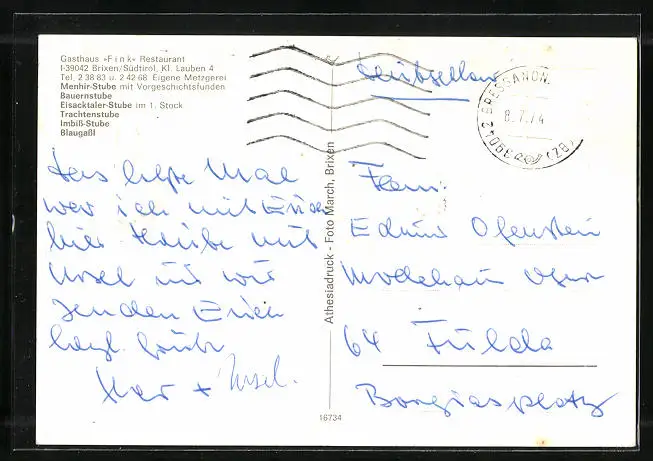 Gasthaus »Fink« Restaurant
I-39042 Brixen/Südtirol, Kl. Lauben 4
Tel. 2 38 83 u. 2 42 68 Eigene Metzgerei
Menhir-Stube mit Vorgeschichtsfunden
Bauernstube
Eisacktaler-Stube im 1. Stock
Trachtenstube
Imbiß-Stube
Blaugaßl
39042 BRESSANONE (BZ)
8.7.74
Das letzte Mal
war ich mit Euch
hier. Heute mit
Ursel und wir
senden Euch
herzl. Grüße
+ Ursel.
Athesiadruck - Foto March, Brixen
16734
Fam.
Edwin Ofenstein
Modehaus
64 Fulda
Borgiasplatz